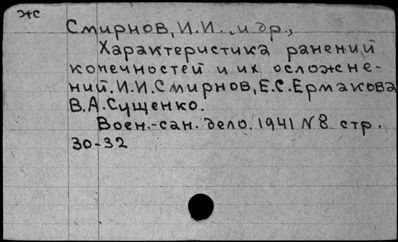 жс
Смирнов, И.И. и др.,
Характеристика ранений
конечностей и их осложне-
ний. И.И.Смирнов, Е.С.Ермакова,
В.А.Сущенко.
Воен.-сан. дело. 1941 N8 стр.
30-32